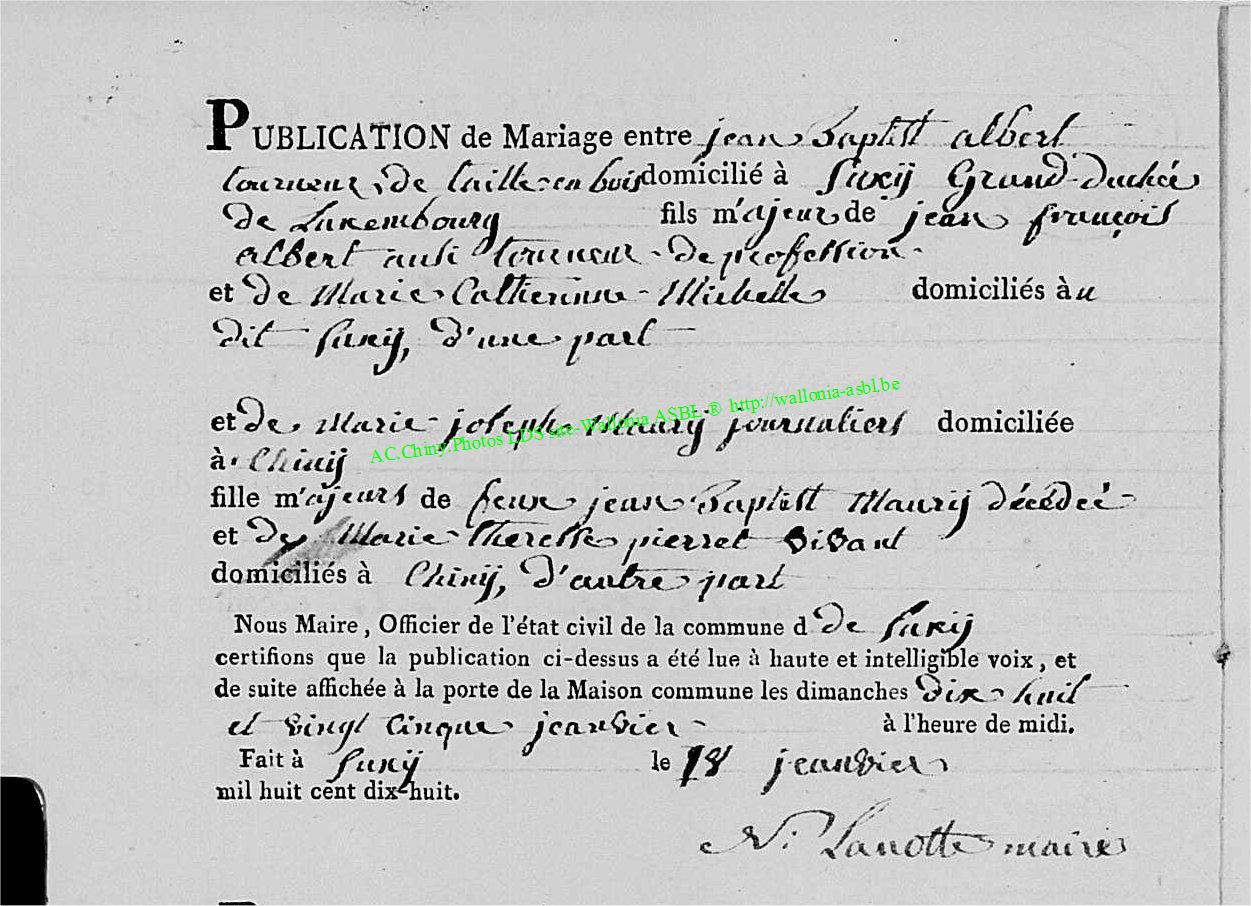 PUBLICATION de Mariage entre jean Baptist albert
tourneur de taille en bois domicilié à Suxÿ Grand-duchée
de Luxembourg fils majeur de jean françois
albert ausi tourneur de profession
et de Marie Catherinne Michelle domiciliés àu
dit Suxÿ, d'une part
et de Marie joseph Maurÿ journaliers domiciliée
à Chinÿ
fille majeurs de feux jean Baptist Maurÿ décédéé
et de Marie Theresse pierret vivant
domiciliés à Chinÿ, d'autre part
Nous Maire, Officier de l'état civil de la commune d de Suxÿ
certifions que la publication ci-dessus a été lue à haute et intelligible voix, et
de suite affichée à la porte de la Maison commune les dimanches dix huit
et vingt cinque jeanvier à l'heure de midi.
Fait à Suxÿ le 18 jeanvier
mil huit cent dix-huit.
N. Lanotte maire
AC.Chiny.Photos LDS site-Wallonia ASBL ® http://wallonia-asbl.be